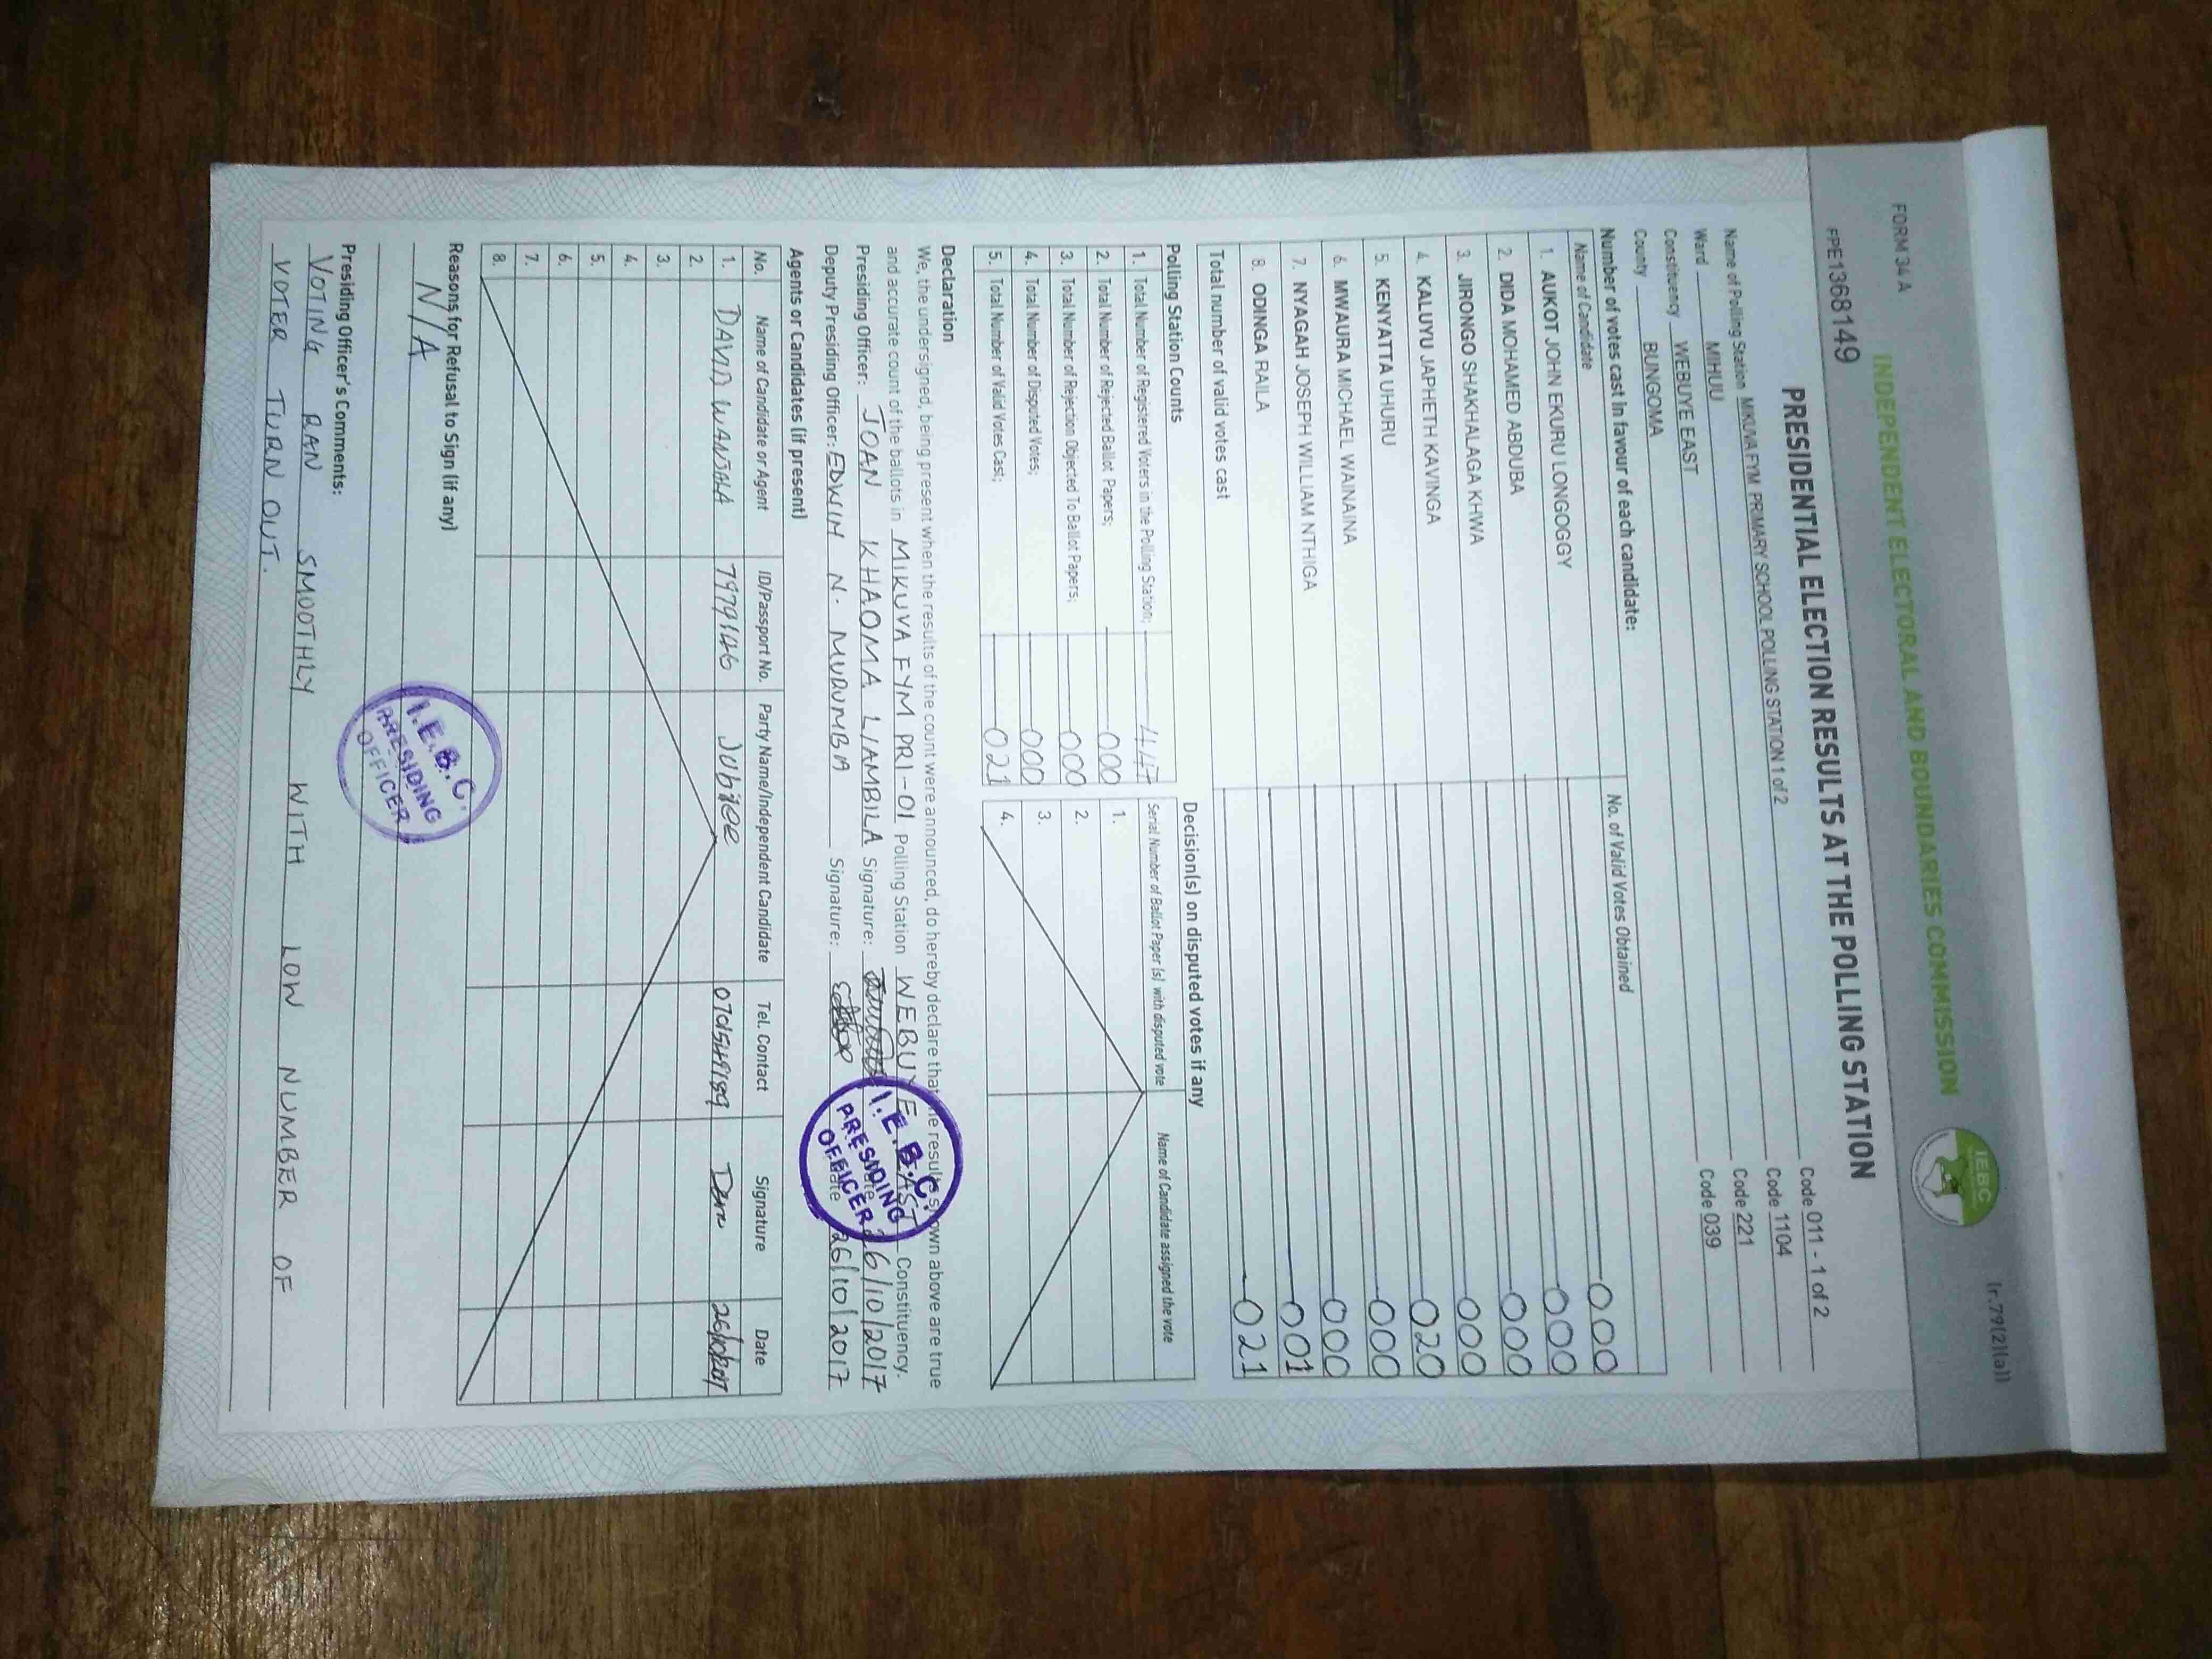 FORM 34A
(r.79(2)(a))
INDEPENDENT ELECTORAL AND BOUNDARIES COMMISSION
IEBC
FPE1368149
PRESIDENTIAL ELECTION RESULTS AT THE POLLING STATION
Name of Polling Station MIKUVA FYM PRIMARY SCHOOL POLLING STATION 1 of 2 Code 011 - 1 of 2
Ward MIHUU Code 1104
Constituency WEBUYE EAST Code 221
County BUNGOMA Code 039
Number of votes cast in favour of each candidate:
Name of Candidate No. of Valid Votes Obtained
1. AUKOT JOHN EKURU LONGOGGY 000
2. DIDA MOHAMED ABDUBA 000
3. JIRONGO SHAKHALAGA KHWA 000
4. KALUYU JAPHETH KAVINGA 000
5. KENYATTA UHURU 020
6. MWAURA MICHAEL WAINAINA 000
7. NYAGAH JOSEPH WILLIAM NTHIGA 000
8. ODINGA RAILA 001
Total number of valid votes cast 021
Polling Station Counts
1. Total Number of Registered Voters in the Polling Station; 447
2. Total Number of Rejected Ballot Papers; 000
3. Total Number of Rejection Objected To Ballot Papers; 000
4. Total Number of Disputed Votes; 000
5. Total Number of Valid Votes Cast; 021
Decision(s) on disputed votes if any
Serial Number of Ballot Paper (s) with disputed vote Name of Candidate assigned the vote
1.
2.
3.
4.
Declaration
We, the undersigned, being present when the results of the count were announced, do hereby declare that the results shown above are true
and accurate count of the ballots in MIKUVA FYM PRI-01 Polling Station WEBUYE EAST Constituency.
Presiding Officer: JOAN KHAOMA LIAMBILA Signature: Date 26/10/2017
Deputy Presiding Officer: EDWIN N. MUDUMBIA Signature: Date 26/10/2017
I.E.B.C.
PRESIDING
OFFICER
Agents or Candidates (if present)
No. Name of Candidate or Agent ID/Passport No. Party Name/Independent Candidate Tel. Contact Signature Date
1. DAVID WANJALA Jubilee
2.
3.
4.
5.
6.
7.
8.
Reasons for Refusal to Sign (if any)
N/A
I.E.B.C.
PRESIDING
OFFICER
Presiding Officer's Comments:
VOTING RAN SMOOTHLY WITH LOW NUMBER OF
VOTER TURN OUT.